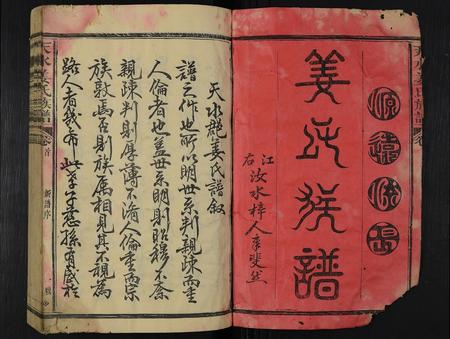 姜氏族譜
江右汝水梓人李斐然
天水郡姜氏譜叙
譜之作也所以明世系判親疎而重
人倫者也蓋世系明則昭穆不紊
親疎判則厚薄不淆人倫重而宗
族敦焉否則族属相見其不視為
路人者幾希此孝子慈孫有感於
天水姜氏族譜
卷首
新譜序
一
天水姜氏族譜